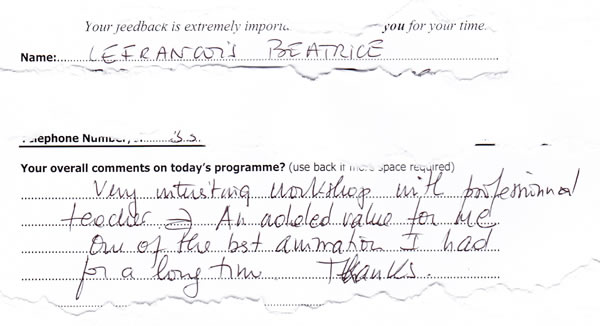 Your feedback is extremely importa you for your time.
Name: LEFRANCOIS BEATRICE
Telephone Number,
Your overall comments on today's programme? (use back if more space required)
Very intersting workshop with professionnal
teacher ⇒ An added value for me
One of the best animation I had
for a long time Thanks.